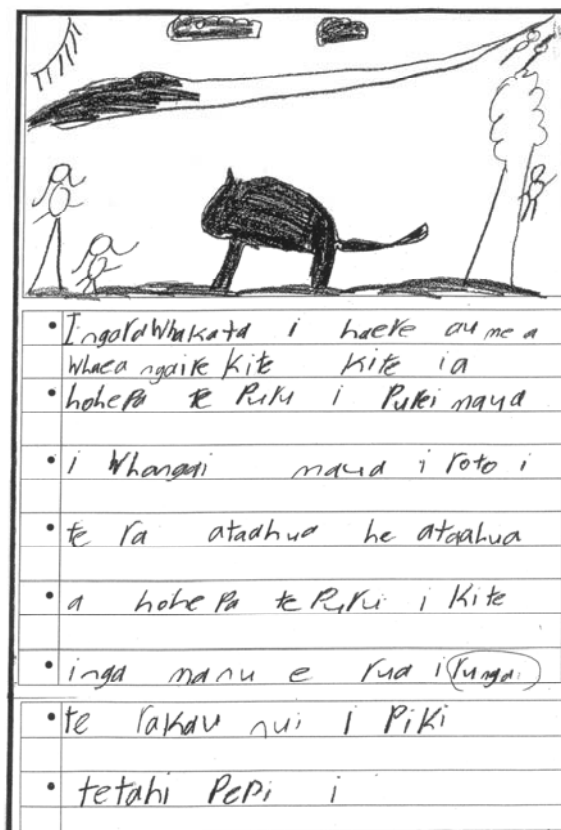 Ingarawhakata i haere au me a
whaea ngaire kite kite ia
hohepa te Puru i Purei maua
i whangai maua i roto i
te ra ataahua he ataahua
a hohe Pa te Puru i kite
inga manu e rua i runga i
te rakau nui i Piki
tetahi PePi i